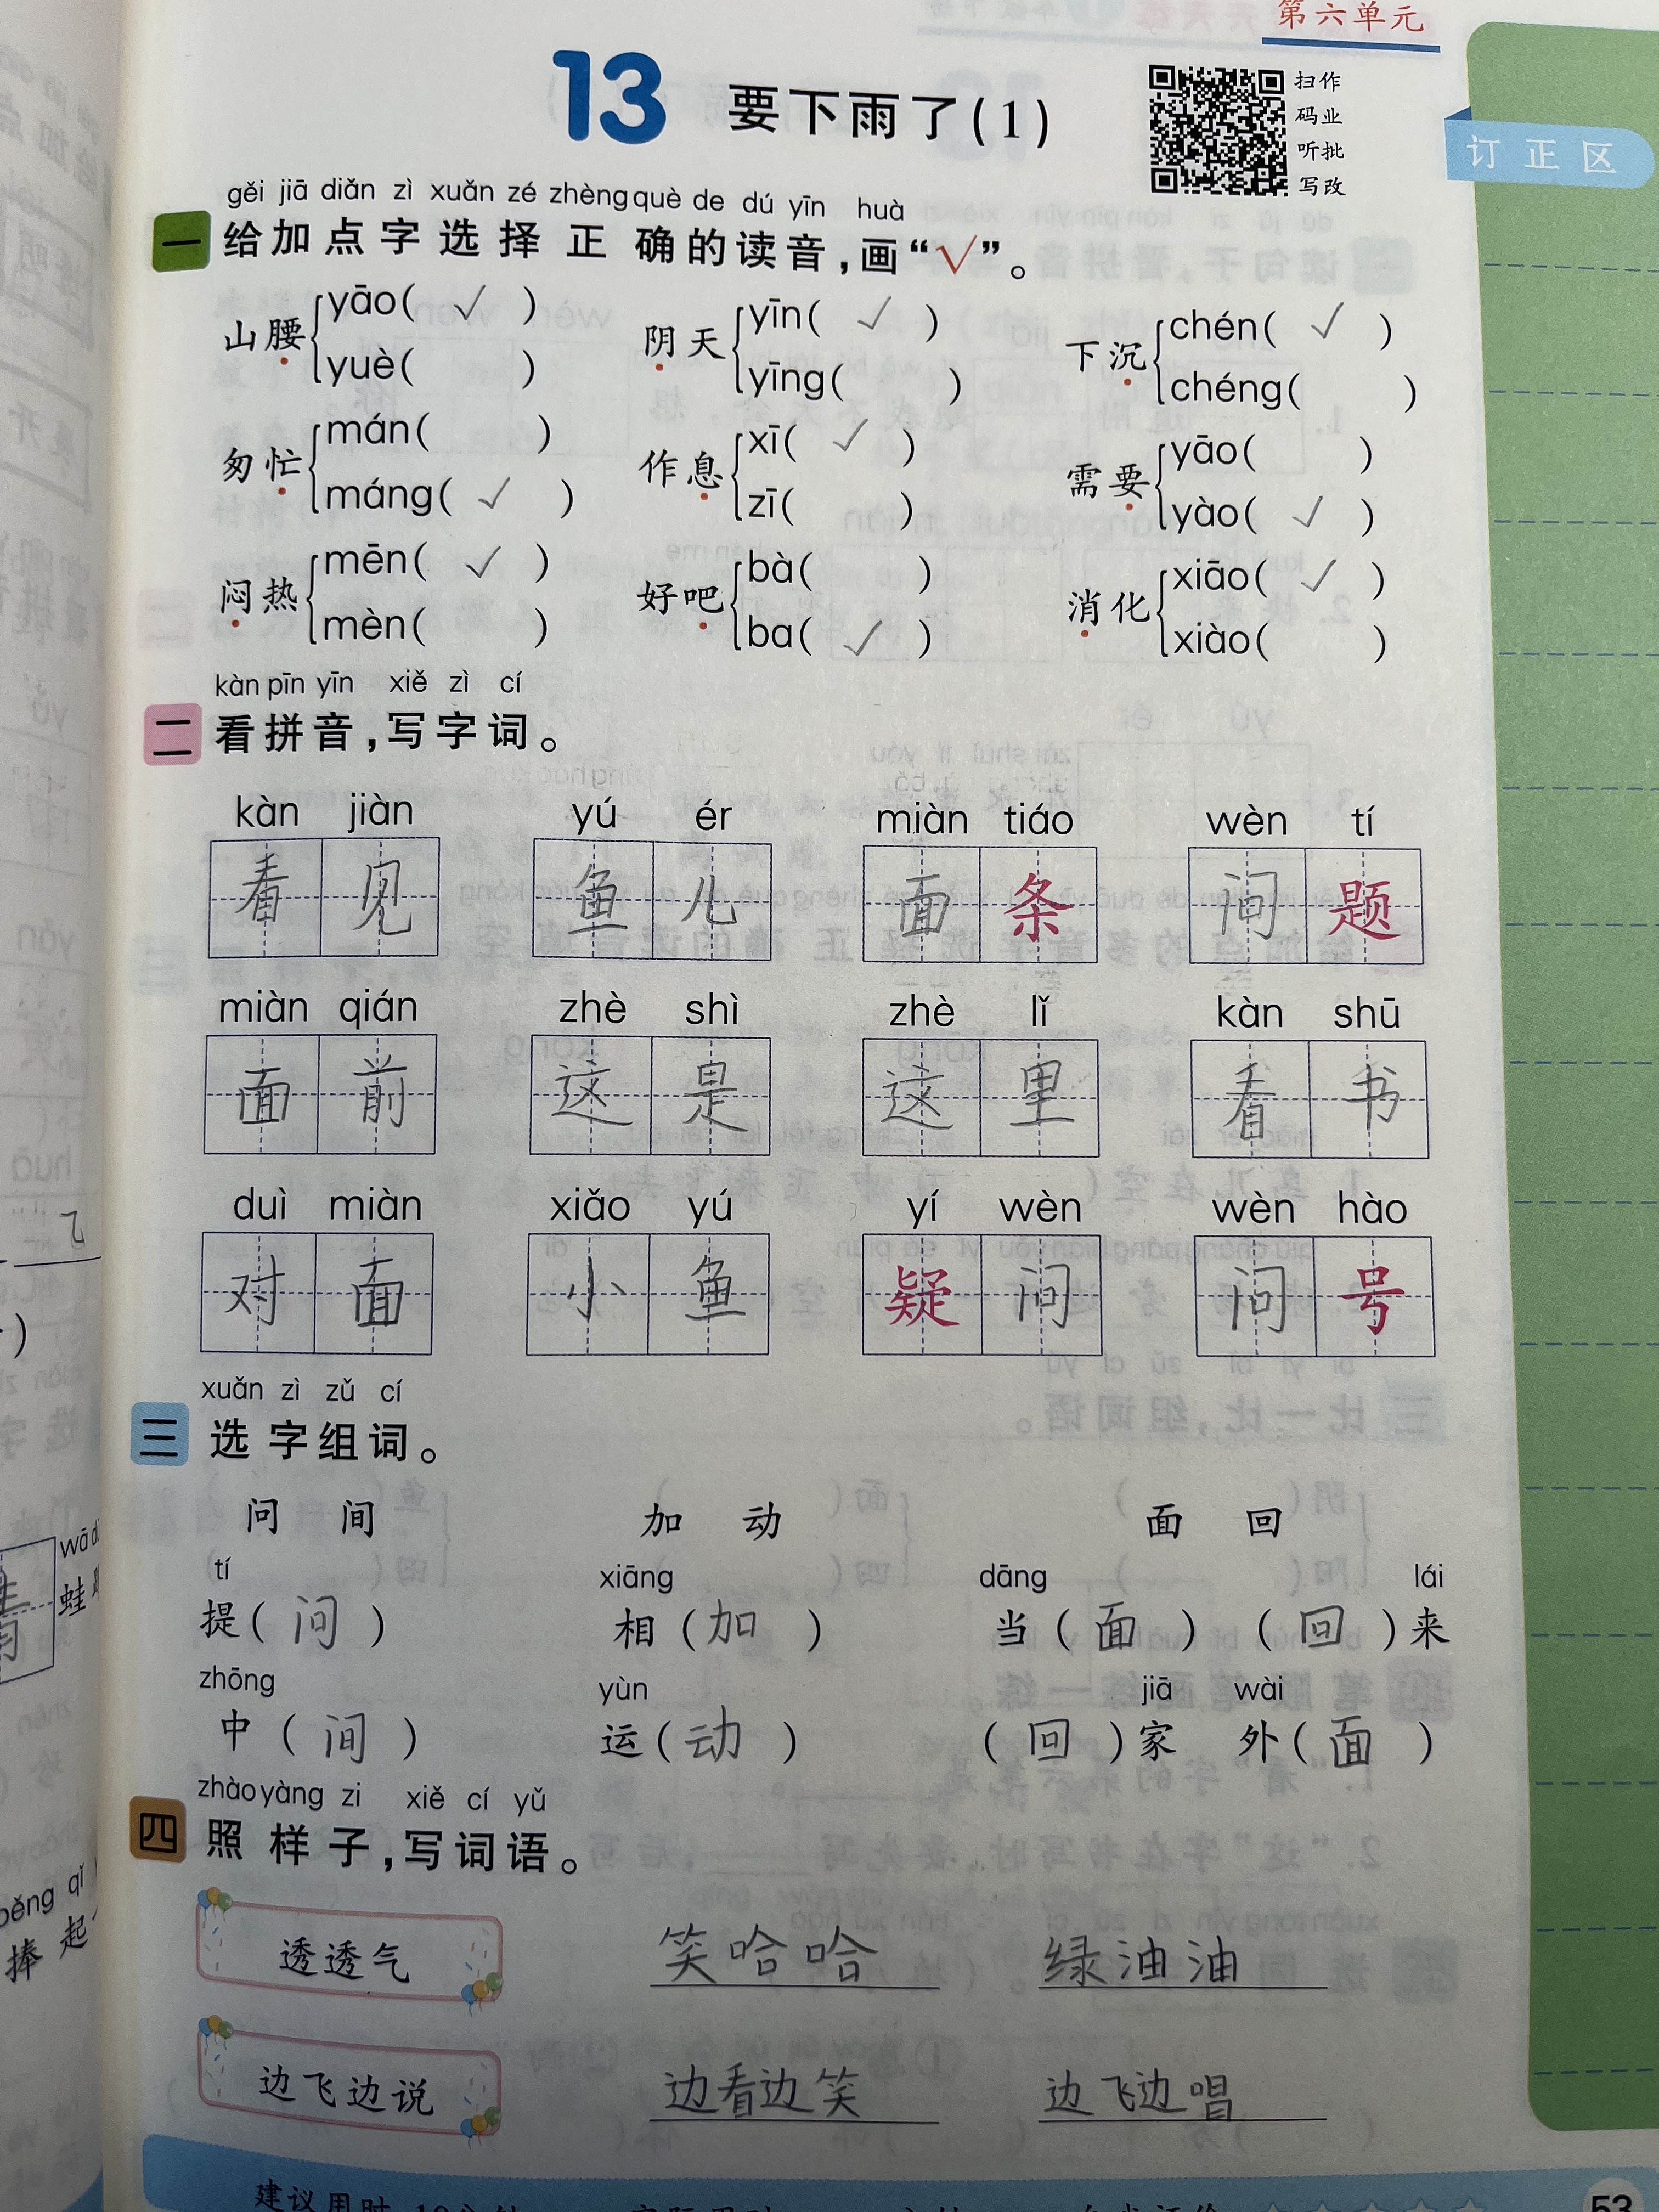 第六单元
13 要下雨了(1)
扫作
码业
听批
写改
订正区
gěi jiā diǎn zì xuǎn zé zhèng què de dú yīn huà
一 给加点字选择正确的读音,画“√”。
yāo( √ ) yīn( √ ) chén( √ )
山腰 阴天 下沉
yuè( ) yīng( ) chéng( )
mán( ) xī( √ ) yāo( )
匆忙 作息 需要
máng( √ ) zī( ) yào( √ )
mēn( √ ) bà( ) xiāo( √ )
闷热 好吧 消化
mèn( ) ba( √ ) xiào( )
kàn pīn yīn xiě zì cí
二 看拼音,写字词。
kàn jiàn yú ér miàn tiáo wèn tí
看见 鱼儿 面条 问题
miàn qián zhè shì zhè lǐ kàn shū
面前 这是 这里 看书
duì miàn xiǎo yú yí wèn wèn hào
对面 小鱼 疑问 问号
xuǎn zì zǔ cí
三 选字组词。
问 间 加 动 面 回
tí xiāng dāng lái
提( 问 ) 相( 加 ) 当( 面 ) ( 回 )来
zhōng yùn jiā wài
中( 间 ) 运( 动 ) ( 回 )家 外( 面 )
zhào yàng zi xiě cí yǔ
四 照样子,写词语。
透透气 笑哈哈 绿油油
边飞边说 边看边笑 边飞边唱
建议用时
53
wā
蛙
pěng qǐ
捧起